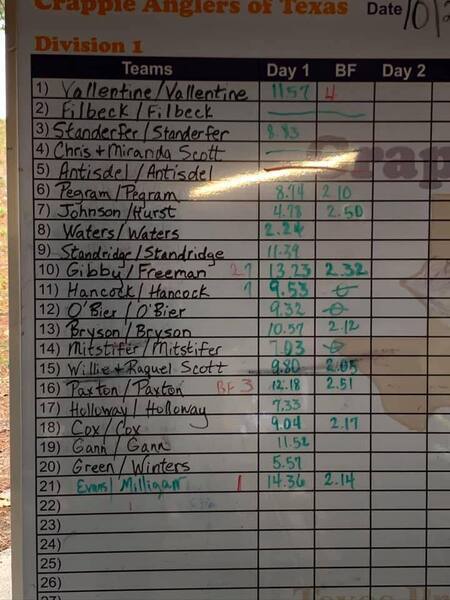 Crappie Anglers of Texas Date 10/
Division 1
Teams Day 1 BF Day 2
1) Vallentine/Vallentine 11.57 4
2) Filbeck/Filbeck
3) Standerfer/Standerfer 8.83
4) Chris + Miranda Scott
5) Antisdel/Antisdel
6) Pegram/Pegram 8.74 2.10
7) Johnson/Hurst 4.78 2.50
8) Waters/Waters 2.24
9) Standridge/Standridge 11.39
10) Gibby/Freeman 2 13.23 2.32
11) Hancock/Hancock 9.53
12) O'Bier/O'Bier 9.32
13) Bryson/Bryson 10.57 2.12
14) Mitstifer/Mitstifer 7.03
15) Willie + Raquel Scott 9.80 2.05
16) Paxton/Paxton BF 3 12.18 2.51
17) Holloway/Holloway 7.33
18) Cox/Cox 9.04 2.17
19) Gann/Gann 11.52
20) Green/Winters 5.57
21) Evans/Milligan 1 14.36 2.14
22)
23)
24)
25)
26)
27)